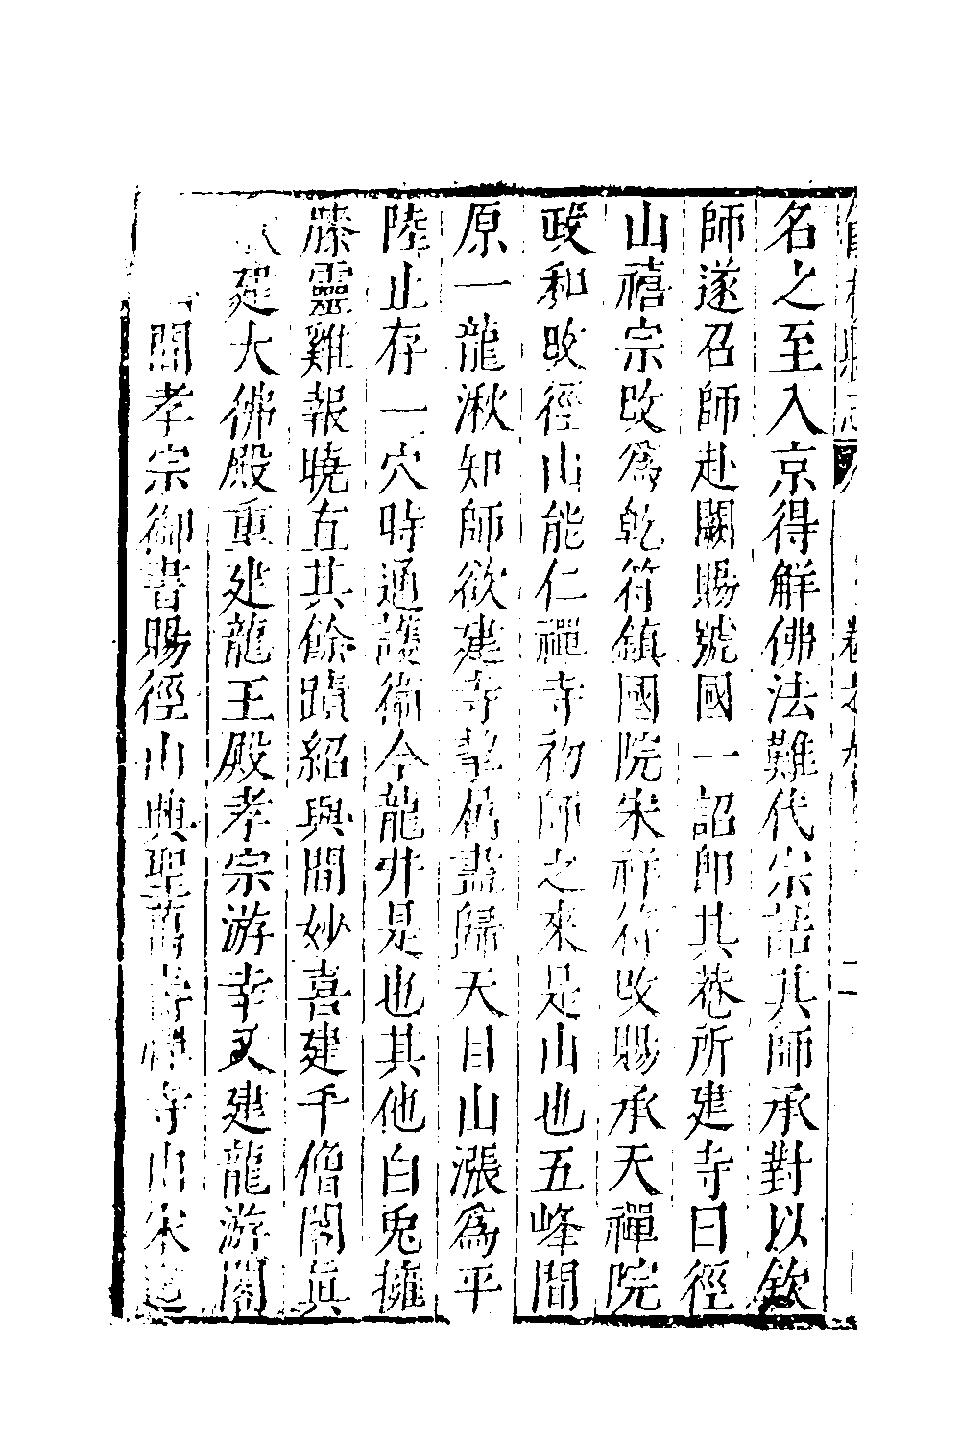 名之至入京得觧佛法難代宗詰其師承對以欽
師遂召師赴闕賜號國一詔郎其巷所建寺曰徑
山禧宗改爲乾符鎮國院宋祥符改賜承天禪院
政和改徑山能仁禪寺初師之來是山也五峰間
原一龍湫知師欲建寺挈仍盡歸天目山漲爲平
陸止存一穴時通護衞今龍井是也其他白兎擁
膝靈雞報曉在其餘蹟紹興間妙喜建千僧閣眞
建大佛殿重建龍王殿孝宗游幸又建龍游閣
間孝宗御書賜徑山興聖萬壽禪寺山宋
卷
二